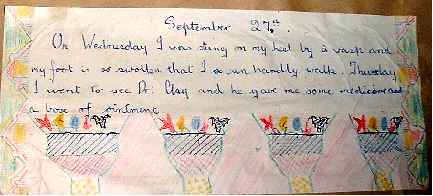 September 27th.
On Wednesday I was stung on my heel by a wasp and
my foot is so swollen that I can hardly walk. Thursday
I went to see Dr. Clay and he gave me some medicine and
a box of ointment